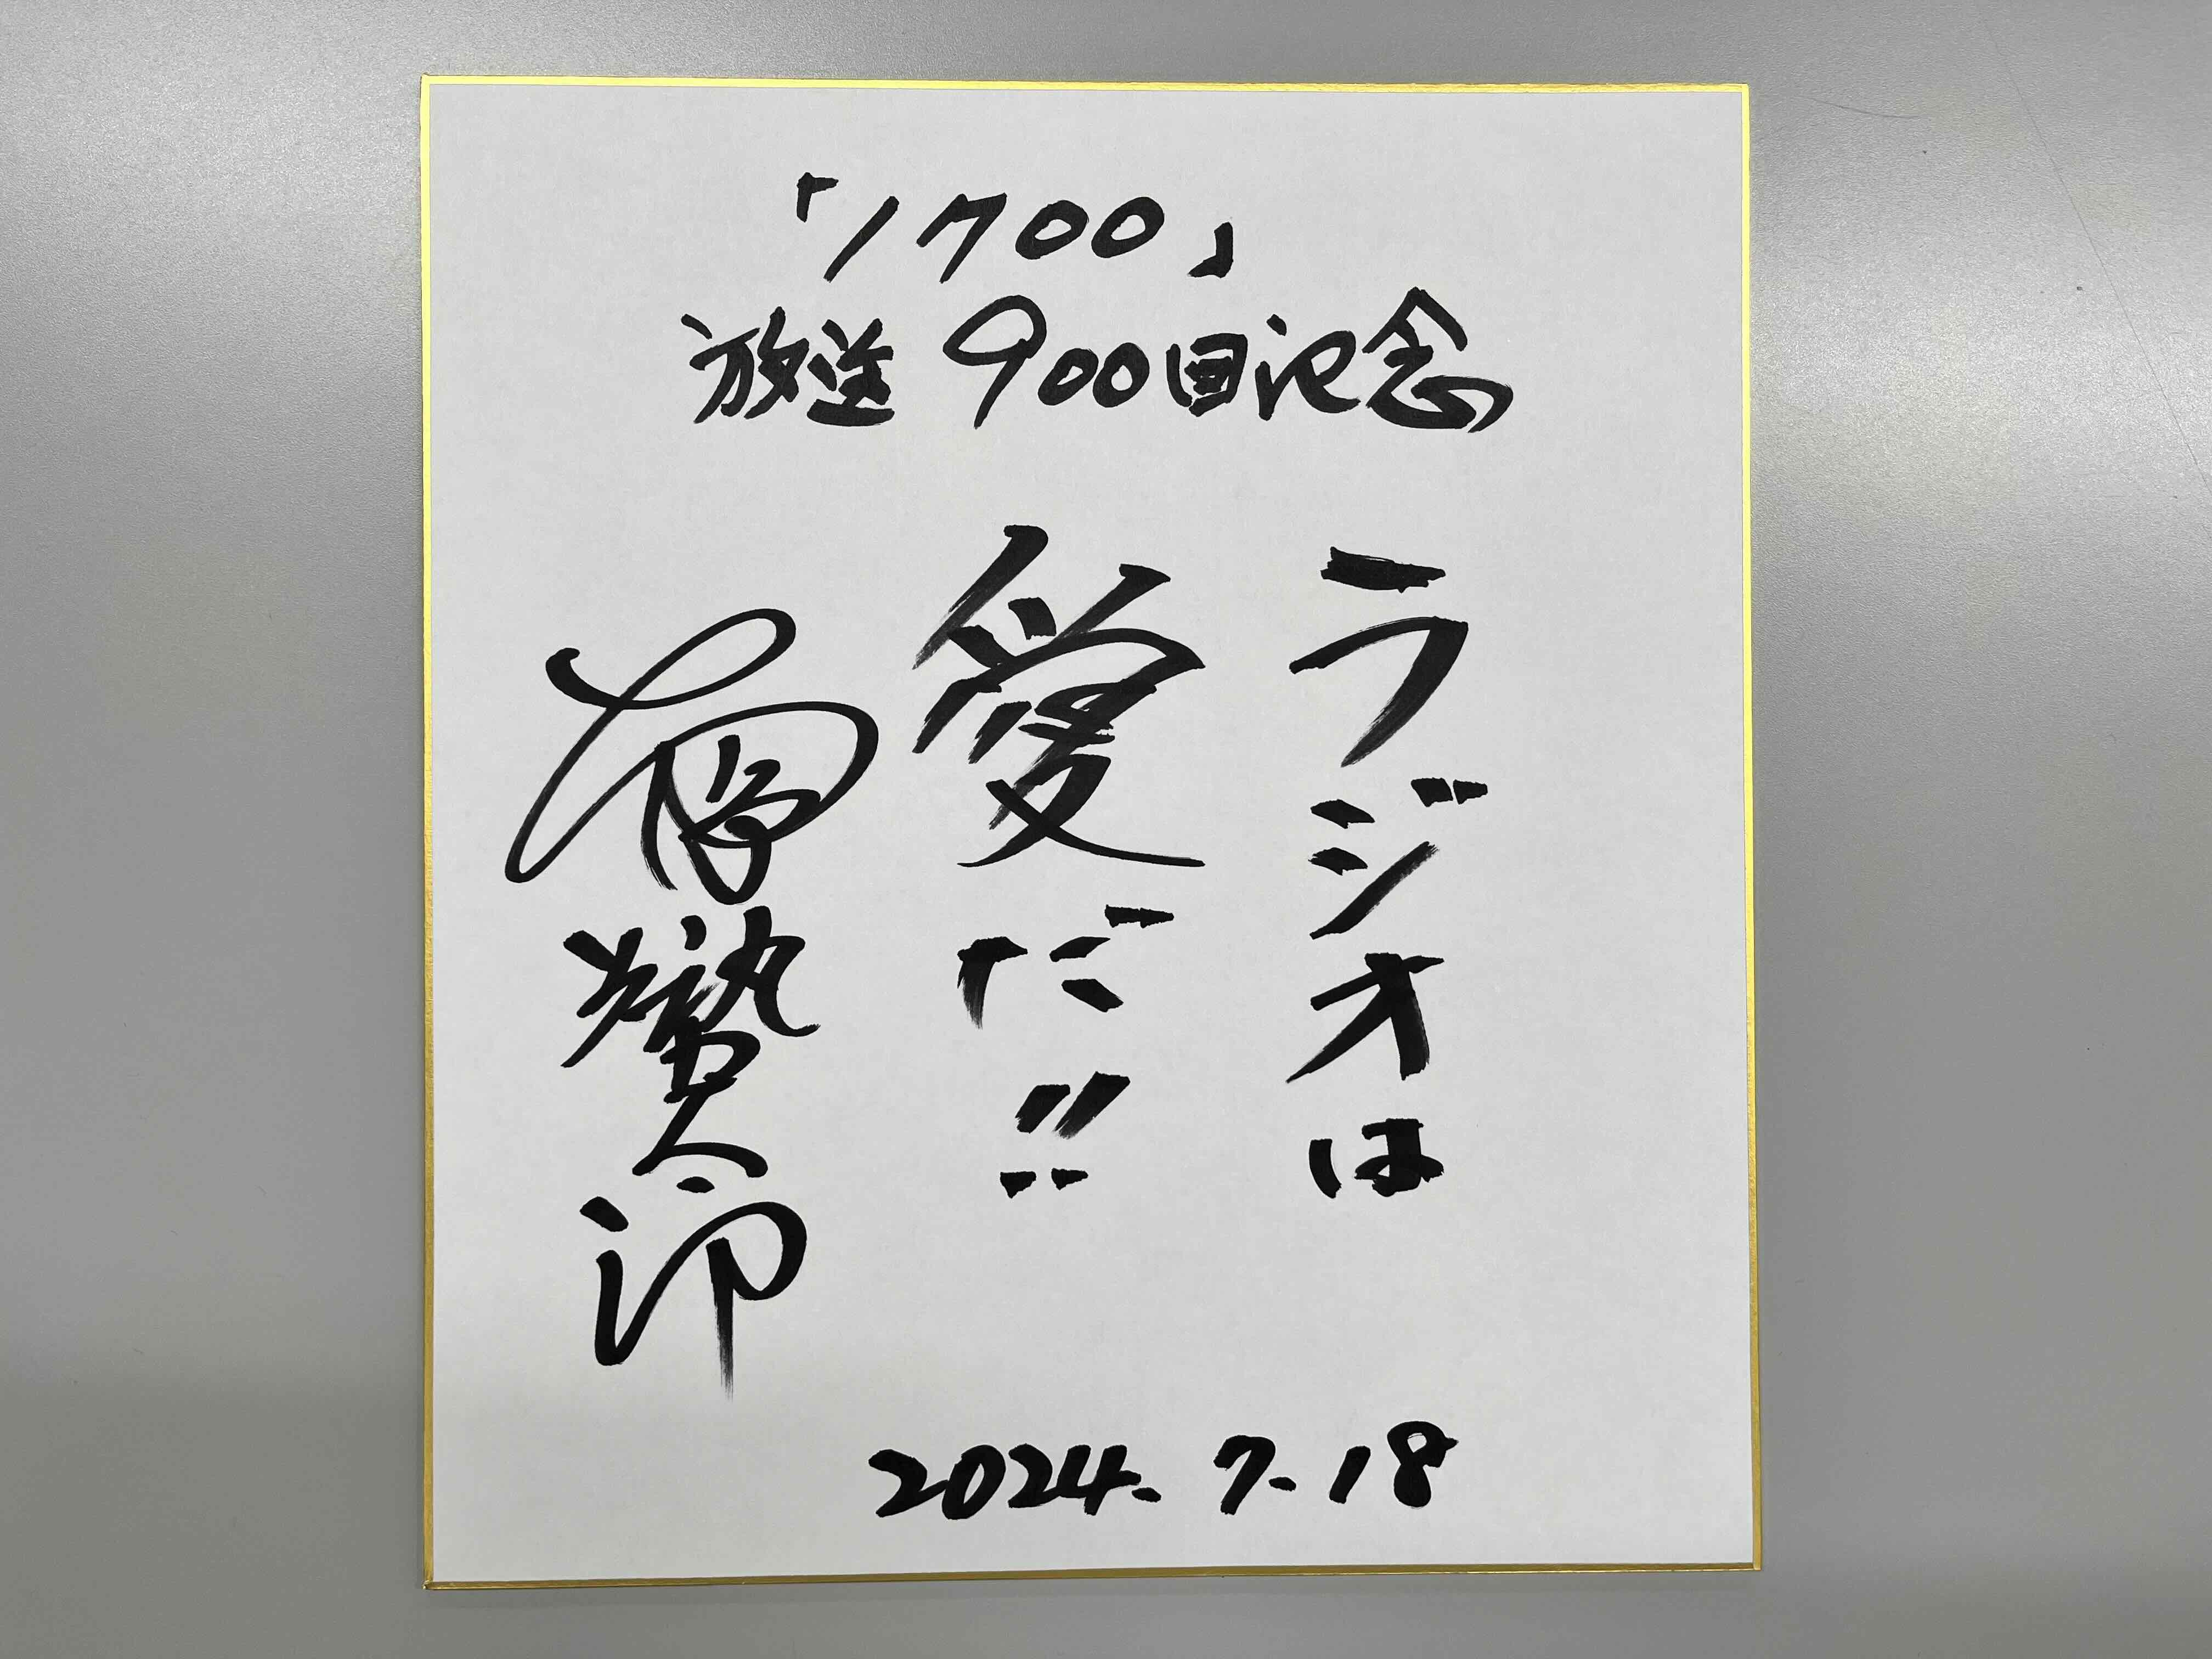 「1700」
放送900回記念
ラジオは
愛だ!!
2024.7.18